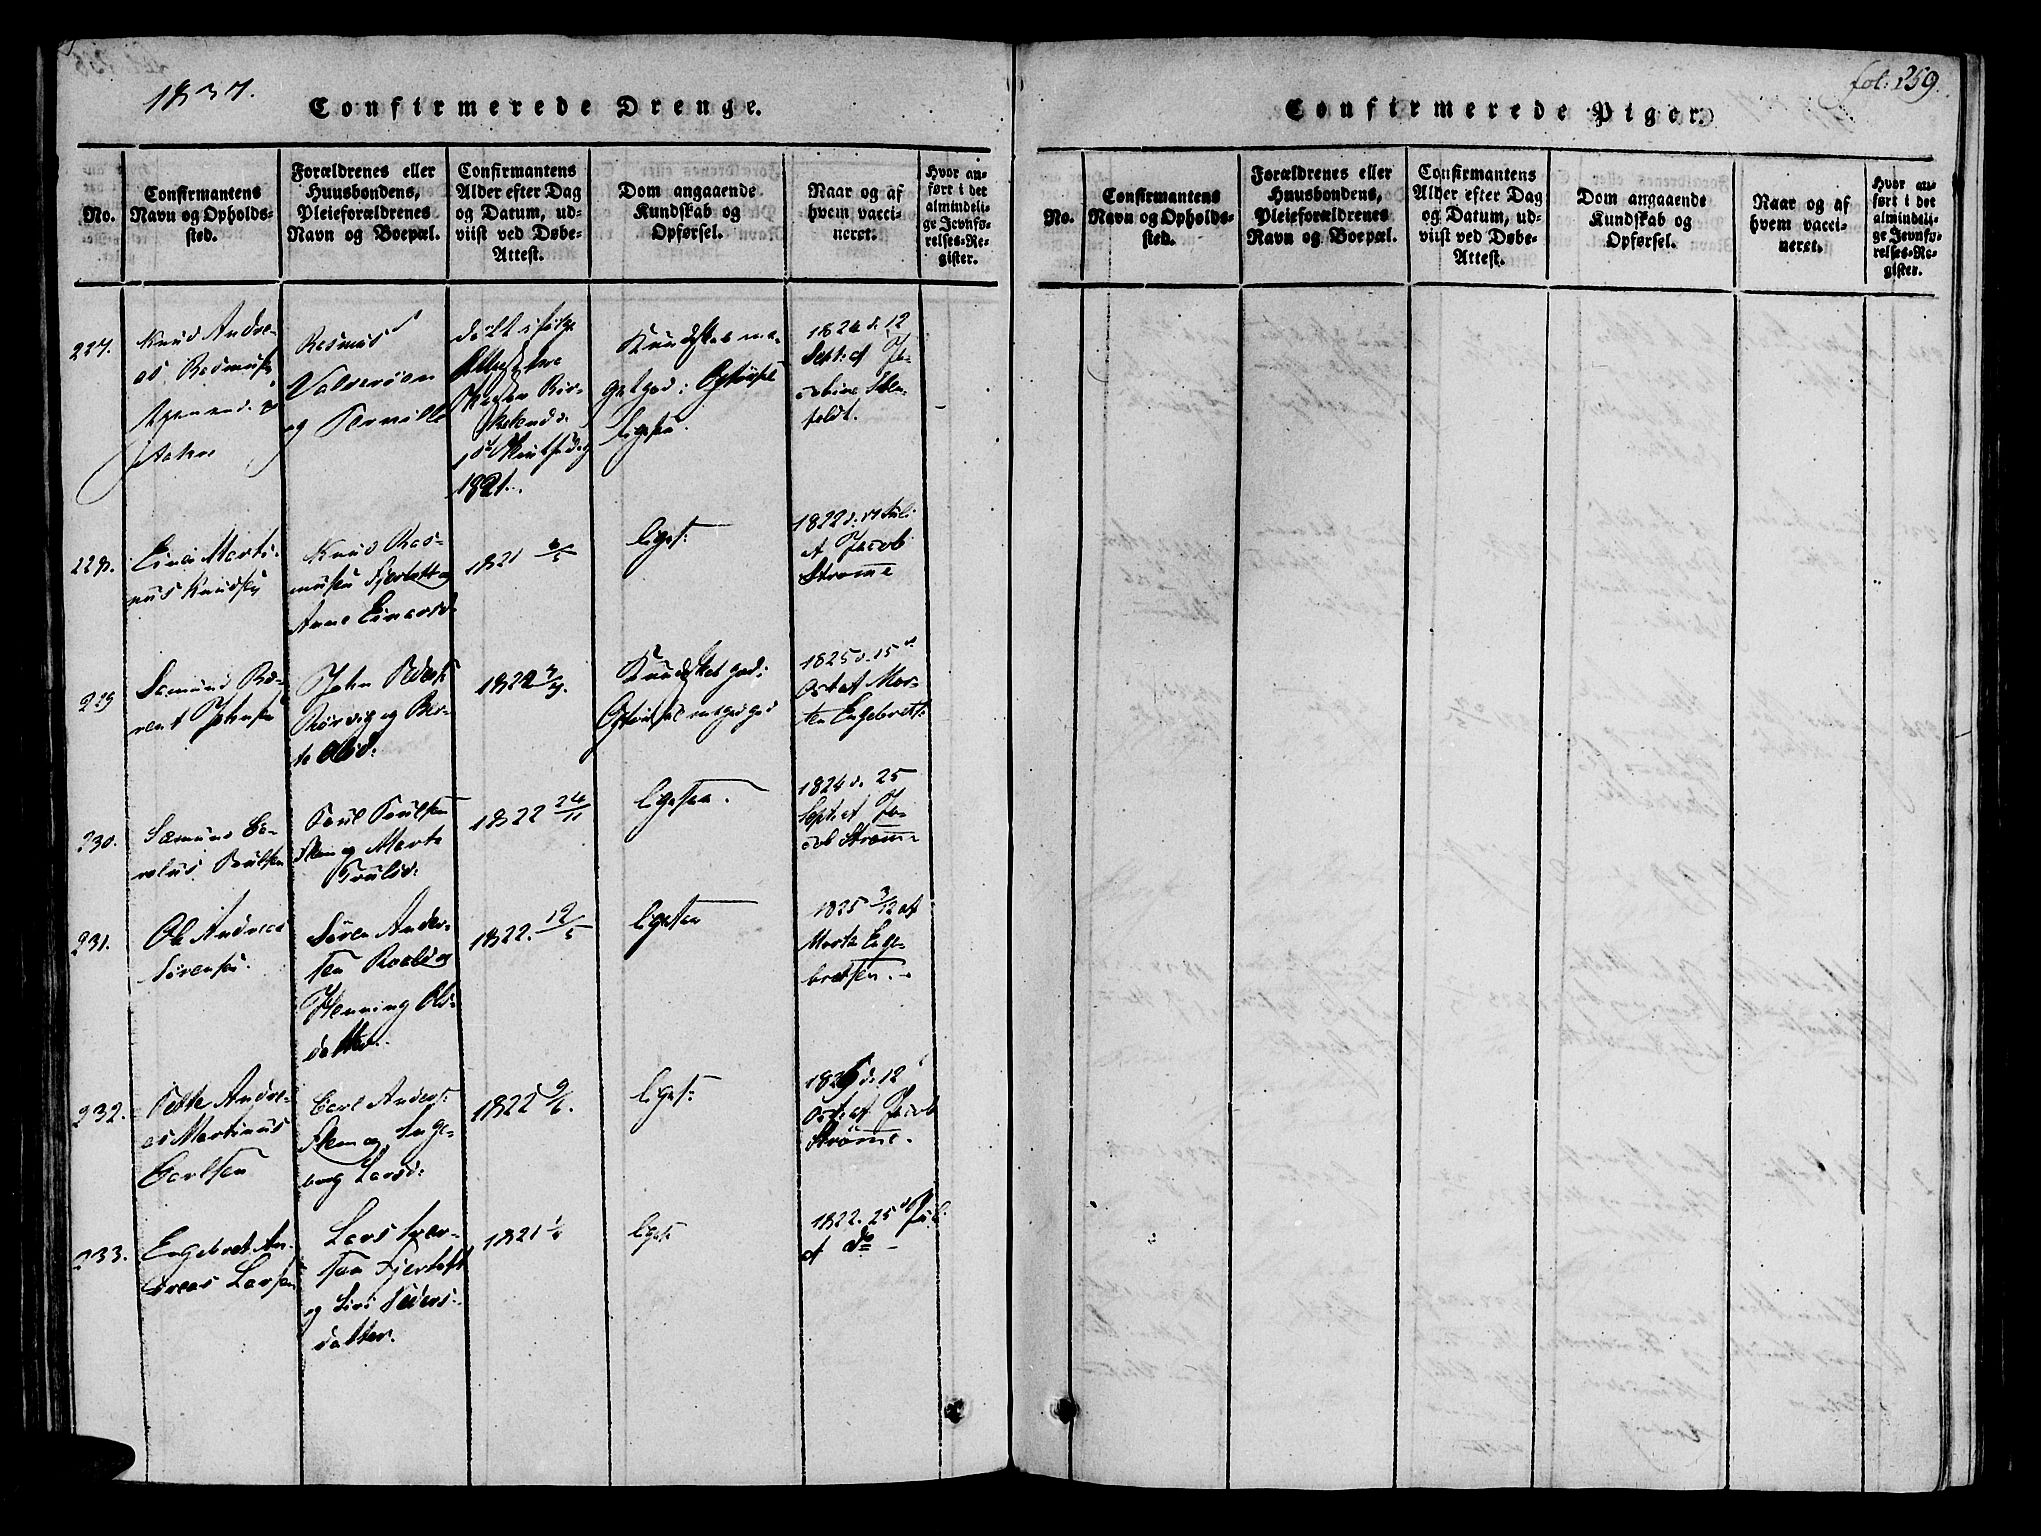 1837.
Confirmerede Drenge.
No.
Confirmantens
Navn og Opholds-
sted.
Forældrenes eller
Huusbondens,
Pleieforældrenes
Navn og Boepæl.
Confirmantens
Alder efter Dag
og Datum, ud-
viist ved Døbe-
Attest.
Dom angaaende
Kundskab og
Opførsel.
Naar og af
hvem vacci-
neret.
Hvor an-
ført i det
almindeli-
ge Jevnfø-
relses-Re-
gister.
227.
Knud Andre-
as Rasmus
Rasmus
og Pernille
døbt ifølge
1821.
Kundskab me-
get god: Opførsel
ligesaa.
1824 d. 12
Sept: af Ja-
feldt.
228.
Einar Marti-
nus Knudsen
Knud Ras-
musen Fjertoft og
Anne Einarsd:
1821
liget:
1822 d. 17 Juli
af Jacob
Strømme
229
Samund Be-
rent Johnsen
John Peders:
Rørvig og Ber-
te Olsd:
1822 3/7.
Kundskab god:
Opførsel meget god
1825 d. 15de
Oct af Mor-
ten Engebrets:
230.
Samund Ca-
rolus Poulsen
Poul Poulsen
Skem og Marte
Poulsd:
1822 24/11
ligesaa.
1824 d. 25
Sept: af Ja-
cob Strømme
231.
Ole Andreas
Sørensen.
Søren Ander-
sen Roald og
Henning Ols-
datter.
1822. 12/5
ligesaa
1825 3/12 af
Morten Enge-
bretsen.
232.
Peter Andre-
as Martinus
Carlsen
Carl Anders:
Skem og Inge-
borg Larsd:
1822 9/6.
liget:
1826 d. 12
Oct: af Jacob
Strømme.
233.
Engebret An-
dreas Larsen
Lars Iver-
sen Fjertoft
og Siri Peders-
datter.
1821
liget:
1822. 25de Juli
af do
fol: 259.
Confirmerede Piger.
No.
Confirmantens
Navn og Opholds-
sted.
Forældrenes eller
Huusbondens,
Pleieforældrenes
Navn og Boepæl.
Confirmantens
Alder efter Dag
og Datum, ud-
viist ved Døbe-
Attest.
Dom angaaende
Kundskab og
Opførsel.
Naar og af
hvem vacci-
neret.
Hvor an-
ført i det
almindeli-
ge Jevnfø-
relses-Re-
gister.